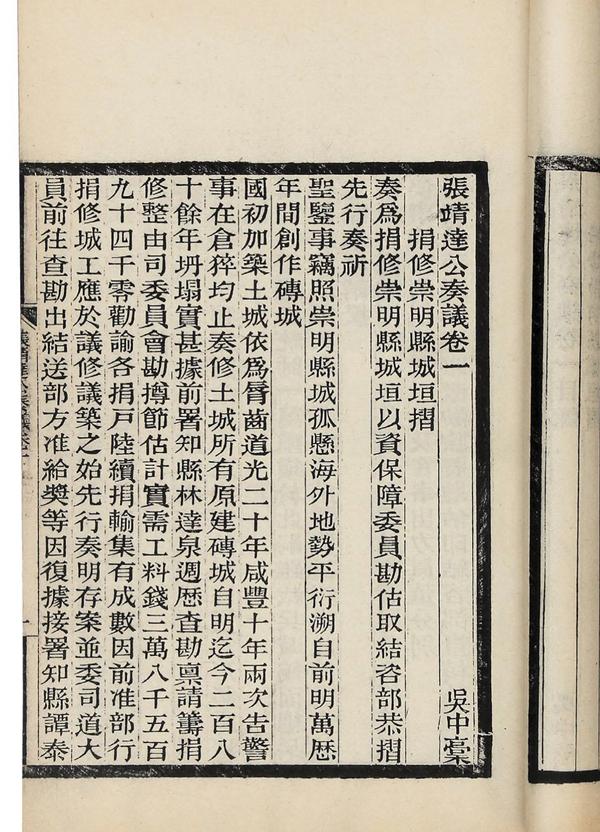 張靖達公奏議卷一
吳中稾
捐修崇明縣城垣摺
奏爲捐修崇明縣城垣以資保障委員勘估取結咨部恭摺
先行奏祈
聖鑒事竊照崇明縣城孤懸海外地勢平衍溯自前明萬歷
年間創作磚城
國初加築土城依爲脣齒道光二十年咸豐十年兩次告警
事在倉猝均止奏修土城所有原建磚城自明迄今二百八
十餘年坍塌實甚據前署知縣林達泉週歷查勘禀請籌捐
修整由司委員會勘撙節估計實需工料錢三萬八千五百
九十四千零勸諭各捐戶陸續捐輸集有成數因前准部行
捐修城工應於議修議築之始先行奏明存案並委司道大
員前往查勘出結送部方准給奬等因復據接署知縣譚泰